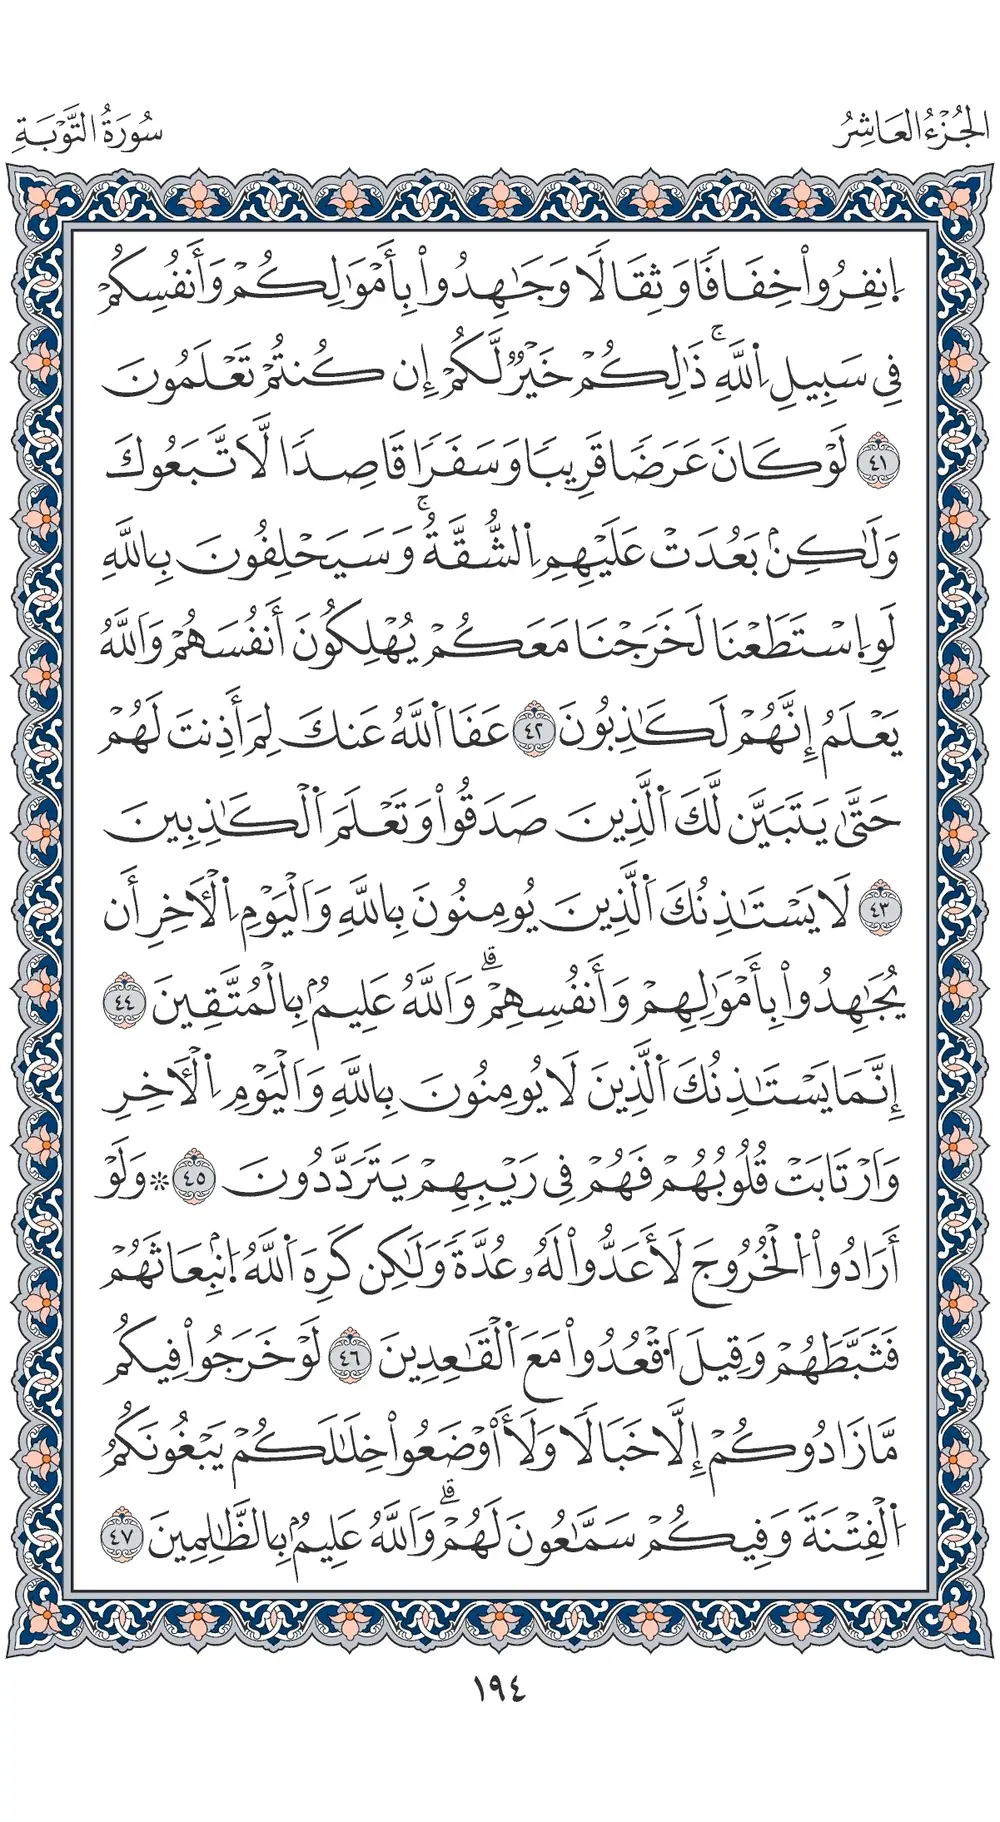 الجُزْءُ العَاشِرُ
سُورَةُ التَّوْبَةِ
اِنفِرُواْ خِفَافٗا وَثِقَالٗا وَجَٰهِدُواْ بِأَمْوَٰلِكُمْ وَأَنفُسِكُمْ
فِى سَبِيلِ اِ۬للَّهِۚ ذَٰلِكُمْ خَيْرٞ لَّكُمْ إِن كُنتُمْ تَعْلَمُونَ
٤١ لَوْ كَانَ عَرَضٗا قَرِيبٗا وَسَفَرٗا قَاصِدٗا لَّاتَّبَعُوكَ
وَلَٰكِنۢ بَعُدَتْ عَلَيْهِمِ اِ۬لشُّقَّةُۚ وَسَيَحْلِفُونَ بِاللَّهِ
لَوِ اِ۪سْتَطَعْنَا لَخَرَجْنَا مَعَكُمْ يُهْلِكُونَ أَنفُسَهُمْ وَاللَّهُ
يَعْلَمُ إِنَّهُمْ لَكَٰذِبُونَ ٤٢ عَفَا اَ۬للَّهُ عَنكَ لِمَ أَذِنتَ لَهُمْ
حَتَّىٰ يَتَبَيَّنَ لَكَ اَ۬لَّذِينَ صَدَقُواْ وَتَعْلَمَ اَ۬لْكَٰذِبِينَ
٤٣ لَا يَسْتَٰذِنُكَ اَ۬لَّذِينَ يُومِنُونَ بِاللَّهِ وَالْيَوْمِ اِ۬لْأٓخِرِ أَن
يُجَٰهِدُواْ بِأَمْوَٰلِهِمْ وَأَنفُسِهِمْۗ وَاللَّهُ عَلِيمُۢ بِالْمُتَّقِينَ ٤٤
إِنَّمَا يَسْتَٰذِنُكَ اَ۬لَّذِينَ لَا يُومِنُونَ بِاللَّهِ وَالْيَوْمِ اِ۬لْأٓخِرِ
وَارْتَابَتْ قُلُوبُهُمْ فَهُمْ فِى رَيْبِهِمْ يَتَرَدَّدُونَ ٤٥ * وَلَوْ
أَرَادُواْ اُ۬لْخُرُوجَ لَأَعَدُّواْ لَهُۥ عُدَّةٗ وَلَٰكِن كَرِهَ اَ۬للَّهُ اُ۪نۢبِعَاثَهُمْ
فَثَبَّطَهُمْ وَقِيلَ اَ۟قْعُدُواْ مَعَ اَ۬لْقَٰعِدِينَ ٤٦ لَوْ خَرَجُواْ فِيكُم
مَّا زَادُوكُمْ إِلَّا خَبَالٗا وَلَأَاْوْضَعُواْ خِلَٰلَكُمْ يَبْغُونَكُمُ
اُ۬لْفِتْنَةَ وَفِيكُمْ سَمَّٰعُونَ لَهُمْۗ وَاللَّهُ عَلِيمُۢ بِالظَّٰلِمِينَ ٤٧
١٩٤